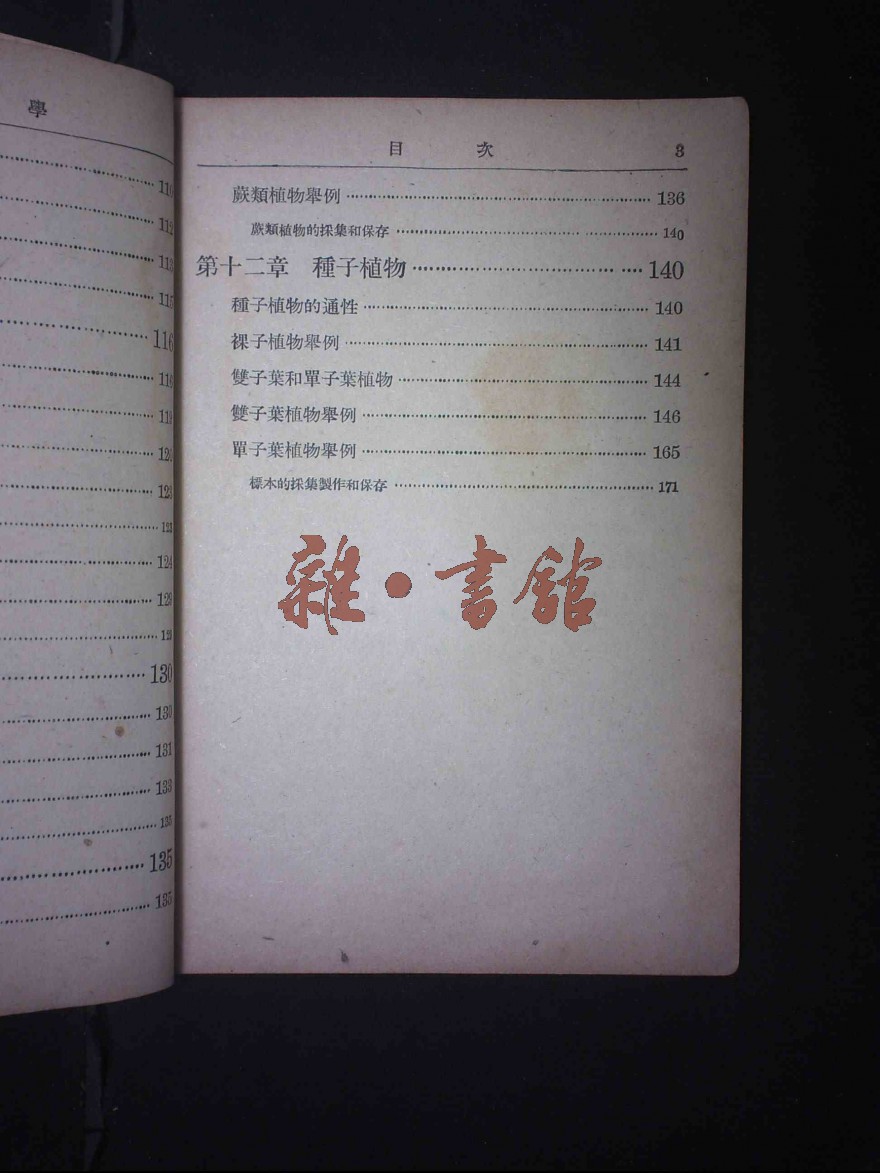 學
110
112
113
115
116
118
123
123
124
129
130
130
131
133
135
135
135
目 次 3
蕨類植物舉例 136
蕨類植物的採集和保存 140
第十二章 種子植物 140
種子植物的通性 140
裸子植物舉例 141
雙子葉和單子葉植物 144
雙子葉植物舉例 146
單子葉植物舉例 165
標本的採集製作和保存 171
雜·書館